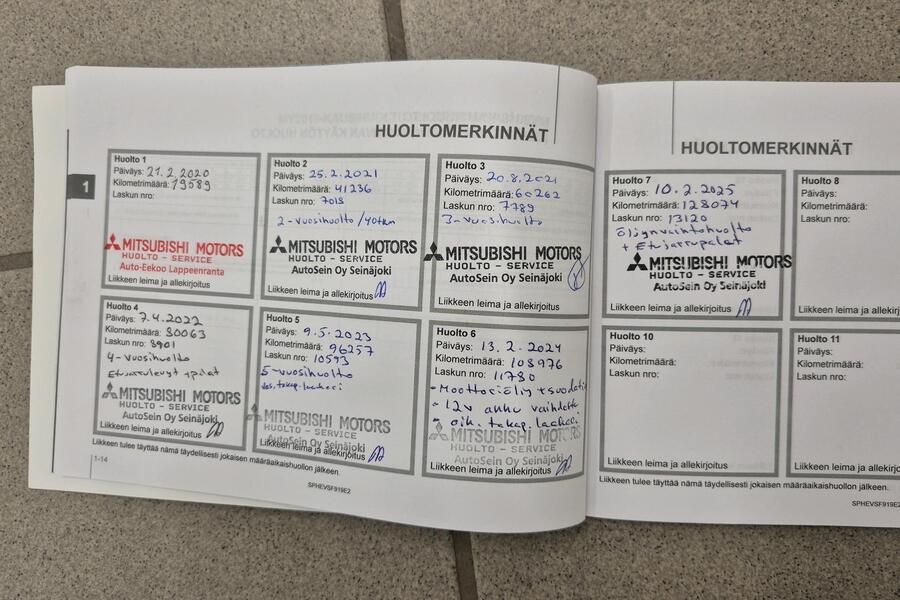 HUOLTOMERKINNÄT
1
Huolto 1
Päiväys: 21.2.2020
Kilometrimäärä: 19589
Laskun nro:
MITSUBISHI MOTORS
HUOLTO - SERVICE
Auto-Eekoo Lappeenranta
Liikkeen leima ja allekirjoitus
Huolto 2
Päiväys: 25.2.2021
Kilometrimäärä: 41236
Laskun nro: 7018
2-vuosihuolto/40tkm
MITSUBISHI MOTORS
HUOLTO - SERVICE
AutoSein Oy Seinäjoki
Liikkeen leima ja allekirjoitus
Huolto 3
Päiväys: 20.8.2021
Kilometrimäärä: 60262
Laskun nro: 7789
3-vuosihuolto
MITSUBISHI MOTORS
HUOLTO - SERVICE
AutoSein Oy Seinäjoki
Liikkeen leima ja allekirjoitus
Huolto 4
Päiväys: 7.4.2022
Kilometrimäärä: 80063
Laskun nro: 8901
4-vuosihuolto
Etujarrulevyt + palat
MITSUBISHI MOTORS
HUOLTO - SERVICE
AutoSein Oy Seinäjoki
Liikkeen leima ja allekirjoitus
Huolto 5
Päiväys: 9.5.2023
Kilometrimäärä: 96257
Laskun nro: 10593
5-vuosihuolto
vas. takap. laakeri
MITSUBISHI MOTORS
HUOLTO - SERVICE
AutoSein Oy Seinäjoki
Liikkeen leima ja allekirjoitus
Huolto 6
Päiväys: 13.2.2024
Kilometrimäärä: 108976
Laskun nro: 11780
- Moottoriöljy + suodatin
- 12v akku vaihdettu
- oik. takap. laakeri
MITSUBISHI MOTORS
HUOLTO - SERVICE
AutoSein Oy Seinäjoki
Liikkeen leima ja allekirjoitus
Liikkeen tulee täyttää nämä täydellisesti jokaisen määräaikaishuollon jälkeen.
1-14
SPHEVSF919E2
HUOLTOMERKINNÄT
Huolto 7
Päiväys: 10.2.2025
Kilometrimäärä: 128074
Laskun nro: 13120
Öljynvaihtohuolto
+ Etujarrupalat
MITSUBISHI MOTORS
HUOLTO - SERVICE
AutoSein Oy Seinäjoki
Liikkeen leima ja allekirjoitus
Huolto 8
Päiväys:
Kilometrimäärä:
Laskun nro:
Liikkeen leima ja allekirjoitus
Huolto 10
Päiväys:
Kilometrimäärä:
Laskun nro:
Liikkeen leima ja allekirjoitus
Huolto 11
Päiväys:
Kilometrimäärä:
Laskun nro:
Liikkeen leima ja allekirjoitus
Liikkeen tulee täyttää nämä täydellisesti jokaisen määräaikaishuollon jälkeen.
SPHEVSF919E2